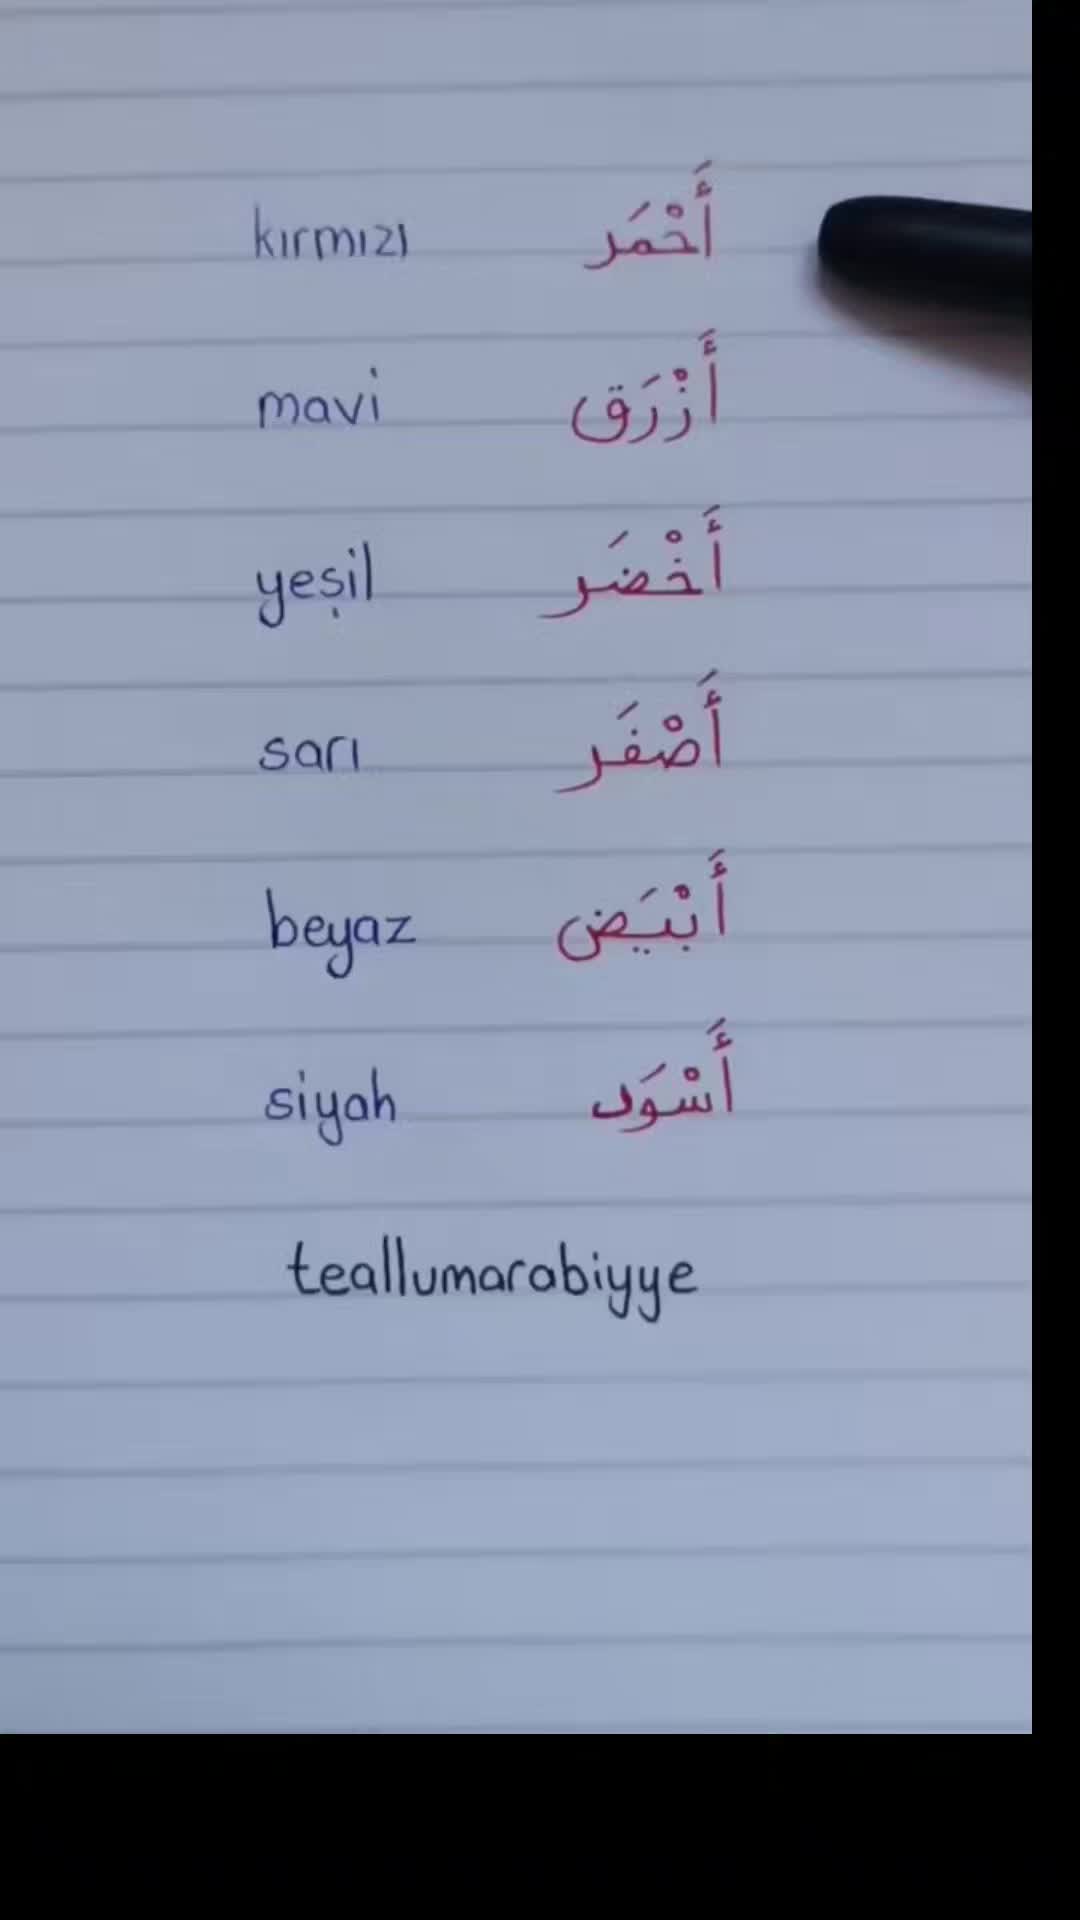 kırmızı أَحْمَر
mavi أَزْرَق
yeşil أَخْضَر
sarı أَصْفَر
beyaz أَبْيَض
siyah أَسْوَد
teallumarabiyye